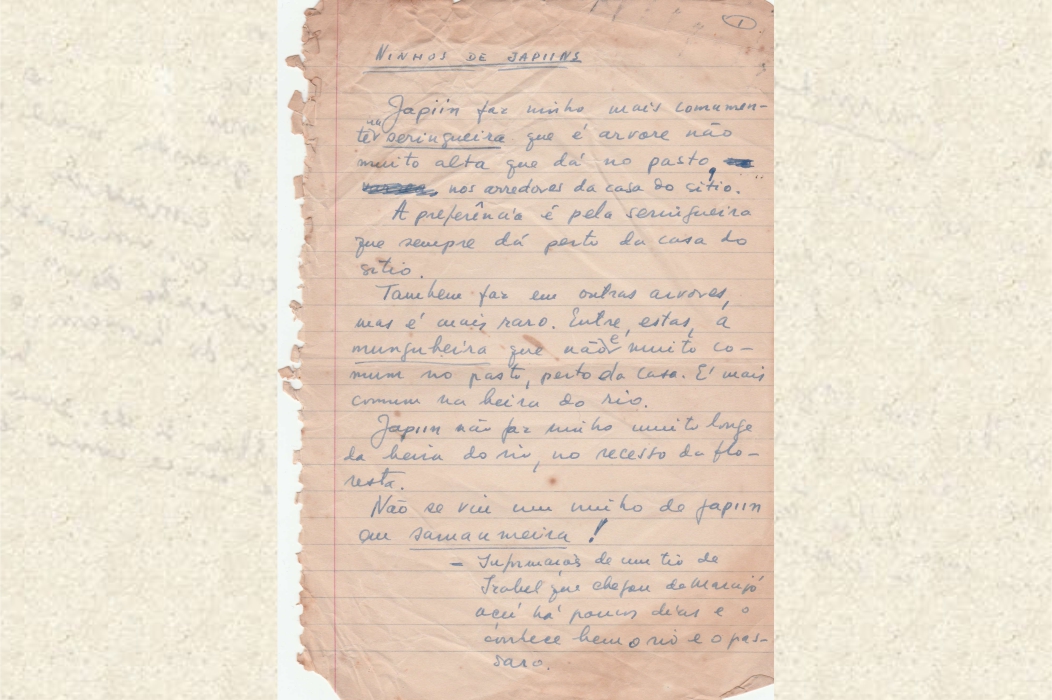 1
NINHOS DE JAPIINS
Japiin faz ninho mais comumen-
te na seringueira que é arvore não
muito alta que dá no pasto
nos arredores da casa do sítio.
A preferência é pela seringueira
que sempre dá perto da casa do
sitio.
Tambem faz em outras arvores,
mas é mais raro. Entre, estas, a
mungubeira que não é muito co-
mum no pasto, perto da casa. É mais
comum na beira do rio.
Japiin não faz ninho muito longe
da beira do rio, no recesso da flo-
resta.
Não se viu um ninho de japiin
em samaumeira!
- Informação de um tio de
Izabel que chegou de Marajó
aqui há poucos dias e
conhece bem o rio e o pas-
saro.